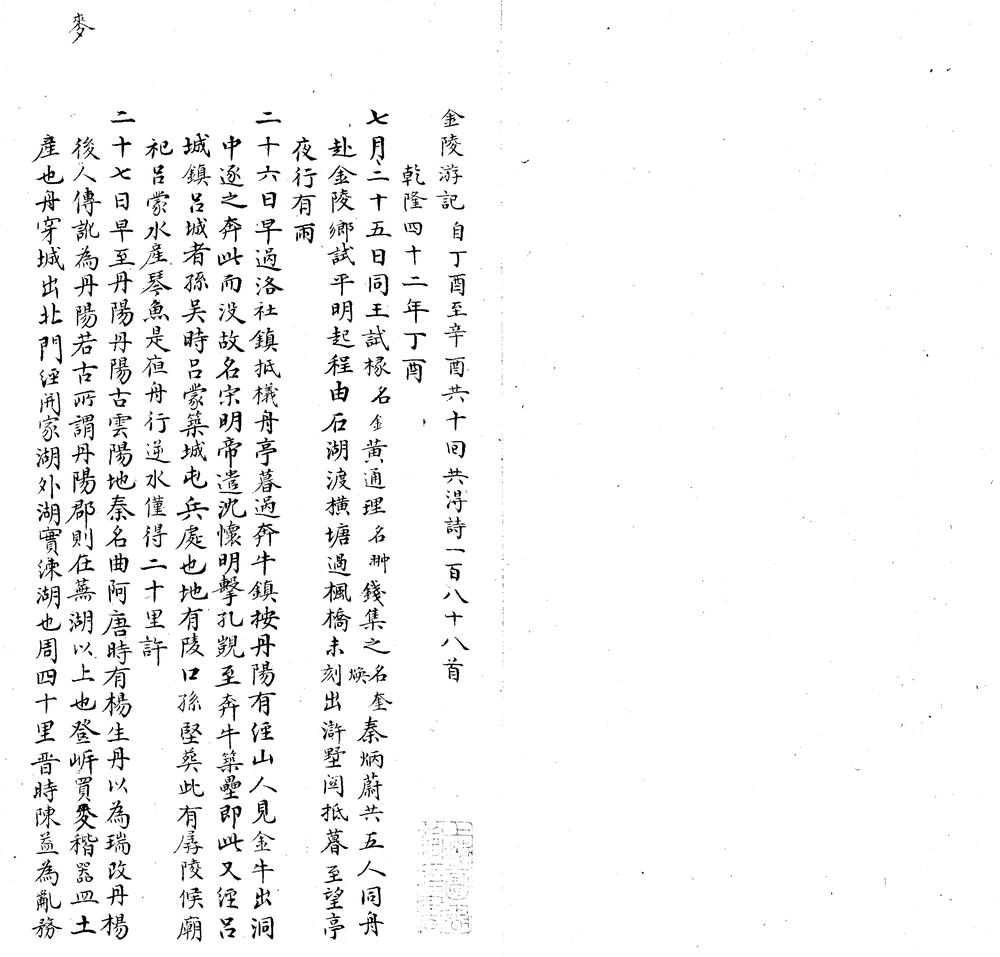 金陵游記 自丁酉至辛酉共十回共得詩一百八十八首
乾隆四十二年丁酉
七月二十五日同王試椽名金黃通理名翀錢集之名奎煥秦炳蔚共五人同舟
赴金陵鄉試平明起程由石湖渡橫塘過楓橋未刻出滸墅関抵暮至望亭
夜行有雨
二十六日早過洛社鎮抵檥舟亭暮過奔牛鎮按丹陽有徑山人見金牛出洞
中逐之奔此而没故名宋明帝遣沈懷明擊孔覬至奔牛築壘即此又徑呂
城鎮呂城者孫吴時呂蒙築城屯兵處也地有陵口孫堅葬此有孱陵侯廟
祀呂蒙水產琴魚是夜舟行逆水僅得二十里許
二十七日早至丹陽丹陽古雲陽地秦名曲阿唐時有楊生丹以為瑞改丹楊
後人傳訛為丹陽若古所謂丹陽郡則在蕪湖以上也登岍買麥稭器皿土
產也舟穿城出北門徑開家湖外湖實練湖也周四十里晋時陳益為亂務
麥